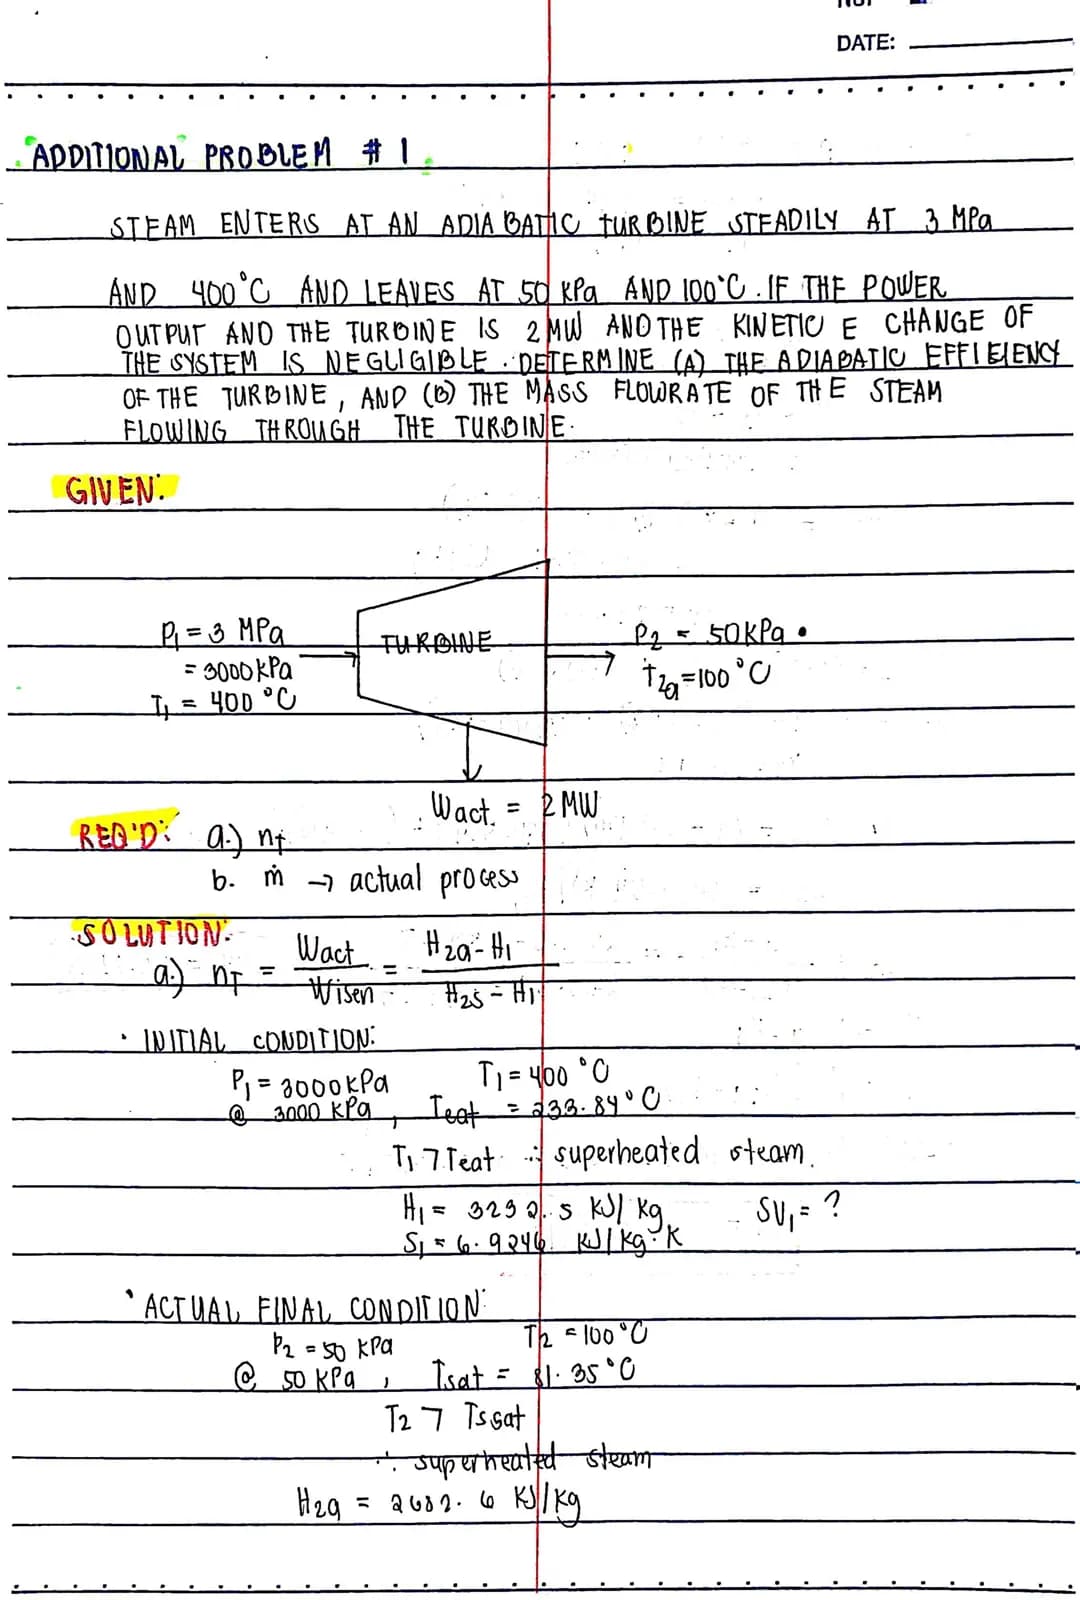 DATE:
ADDITIONAL PROBLEM # 1
STEAM ENTERS AT AN ADIABATIC TURBINE STEADILY AT 3 MPa
AND 400°C AND LEAVES AT 50 KPa AND 100°C. IF THE POWER
OUTPUT AND THE TURBINE IS 2 MW AND THE KINETIC E CHANGE OF
THE SYSTEM IS NEGLIGIBLE. DETERMINE (A) THE ADIABATIC EFFIEIENCY
OF THE TURBINE, AND (B) THE MASS FLOWRATE OF THE STEAM
FLOWING THROUGH THE TURBINE.
GIVEN:
P1 = 3 MPa
= 3000 KPa
T1 = 400 °C
TURBINE
P2 = 50KPa
t2a = 100 °C
Wact. = 2 MW
REQ'D: a.) nt
b. ṁ → actual process
SOLUTION:
a.) nT = Wact / Wisen = H2a - H1 / H2s - H1
• INITIAL CONDITION:
P1 = 3000 KPa T1 = 400 °C
@ 3000 KPa, Tsat = 233.84 °C
T1 > Tsat ∴ superheated steam.
H1 = 3232.5 KJ/kg SV1 = ?
S1 = 6.9246 KJ/kg·K
• ACTUAL FINAL CONDITION:
P2 = 50 KPa T2 = 100°C
@ 50 KPa, Tsat = 81.35 °C
T2 > Tssat
∴ superheated steam
H2a = 2682.6 KJ/kg